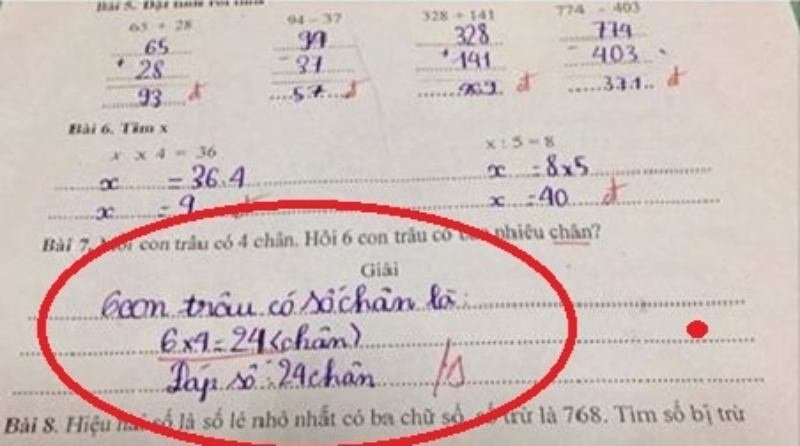 Bài 5. Đặt tính rồi tính
65 + 28 94 – 37 328 + 141 774 – 403
65 94 328 774
+ 28 - 37 + 141 - 403
93 đ 57 đ 469 đ 371 đ
Bài 6. Tìm x
x x 4 = 36 x : 5 = 8
x = 36:4 x = 8x5
x = 9 đ x = 40 đ
Bài 7. Mỗi con trâu có 4 chân. Hỏi 6 con trâu có bao nhiêu chân?
Giải
6 con trâu có số chân là:
6x4=24(chân)
Đáp số: 24 chân /s
Bài 8. Hiệu hai số là số lẻ nhỏ nhất có ba chữ số, số trừ là 768. Tìm số bị trừ